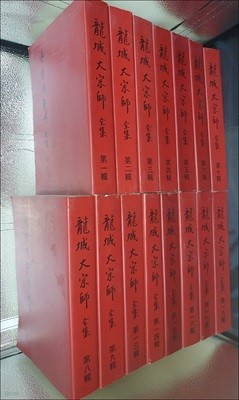 龍城大宗師 全集 第一輯
龍城大宗師 全集 第二輯
龍城大宗師 全集 第三輯
龍城大宗師 全集 第四輯
龍城大宗師 全集 第五輯
龍城大宗師 全集
龍城大宗師 全集 第七輯
龍城大宗師 全集 第八輯
龍城大宗師 全集 第九輯
龍城大宗師 全集 第一三輯
龍城大宗師 全集 第一四輯
龍城大宗師 全集
龍城大宗師 全集
龍城大宗師 全集
龍城大宗師 全集